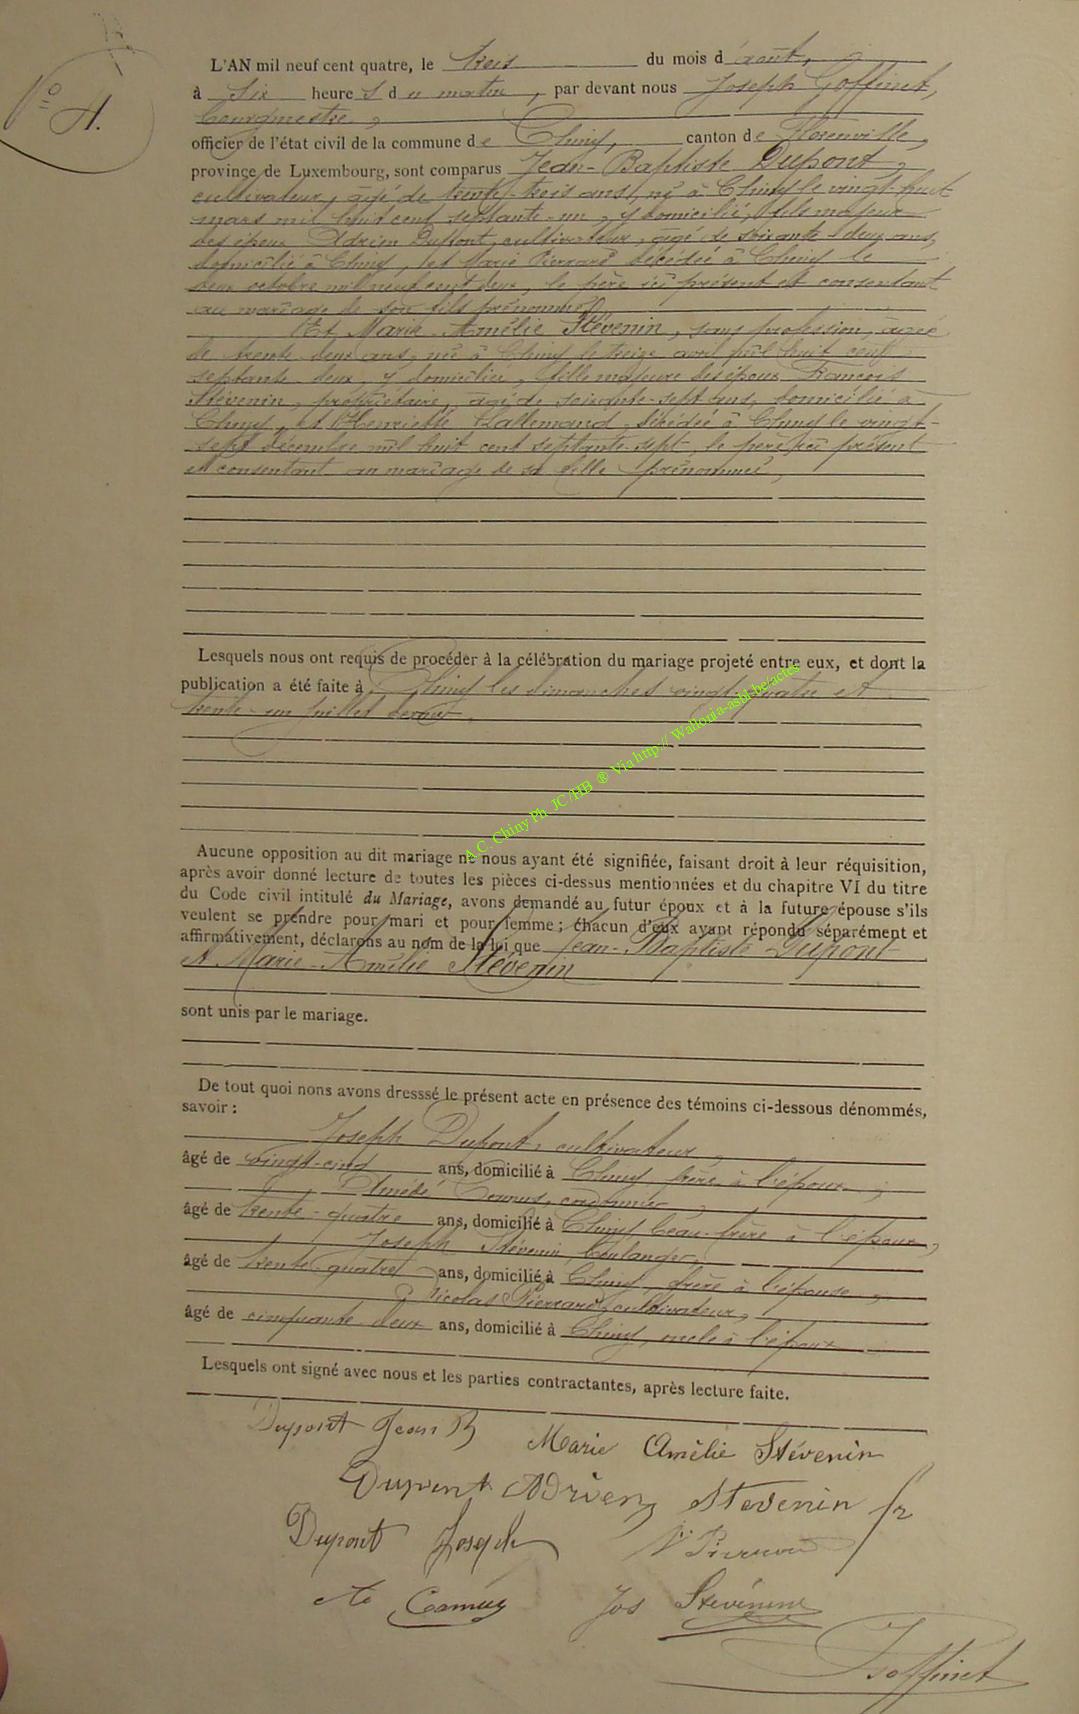 N° 4.
L'AN mil neuf cent quatre, le trois du mois d'août,
à six heures du matin, par devant nous Joseph Goffinet,
bourgmestre,
officier de l'état civil de la commune de Chiny, canton de Florenville,
province de Luxembourg, sont comparus Jean-Baptiste Dupont,
cultivateur, âgé de trente-trois ans, né à Chiny le vingt-huit
mars mil huit cent septante-un, y domicilié, fils majeur
des époux Adrien Dupont, cultivateur, âgé de soixante-deux ans,
domicilié à Chiny, et Marie Pierrard décédée à Chiny le
deux octobre mil neuf cent deux, le père ici présent et consentant
au mariage de son fils prénommé
Et Marie Amélie Stévenin, sans profession, âgée
de trente-deux ans, née à Chiny le treize avril mil huit cent
septante-deux, y domiciliée, fille majeure des époux François
Stévenin, propriétaire, âgé de soixante-sept ans, domicilié à
Chiny, et Henriette Lallemand, décédée à Chiny le vingt-
sept décembre mil huit cent septante-sept le père ici présent
et consentant au mariage de sa fille prénommée,
Lesquels nous ont requis de procéder à la célébration du mariage projeté entre eux, et dont la
publication a été faite à Chiny les dimanches vingt-quatre et
trente-un juillet dernier.
A C. Chiny Ph JC/HB ® Via http:// Wallonia-asbl-be/actes
Aucune opposition au dit mariage ne nous ayant été signifiée, faisant droit à leur réquisition,
après avoir donné lecture de toutes les pièces ci-dessus mentionnées et du chapitre VI du titre
du Code civil intitulé du Mariage, avons demandé au futur époux et à la future épouse s'ils
veulent se prendre pour mari et pour femme; chacun d'eux ayant répondu séparément et
affirmativement, déclarons au nom de la loi que Jean-Baptiste Dupont
et Marie-Amélie Stévenin
sont unis par le mariage.
De tout quoi nons avons dresssé le présent acte en présence des témoins ci-dessous dénommés,
savoir :
Joseph Dupont, cultivateur,
âgé de vingt-cinq ans, domicilié à Chiny, frère à l'époux,
Camus, cordonnier,
âgé de trente-quatre ans, domicilié à Chiny beau-frère à l'époux,
Joseph Stévenin, boulanger,
âgé de trente-quatre ans, domicilié à Chiny, frère à l'épouse,
Nicolas Pierrard, cultivateur,
âgé de cinquante-deux ans, domicilié à Chiny, oncle à l'époux
Lesquels ont signé avec nous et les parties contractantes, après lecture faite.
Dupont Jean B Marie Amélie Stévenin
Dupont Adrien Stevenin fr
Dupont Joseph N Pierrard
Camus Jos Stévenin
J Goffinet